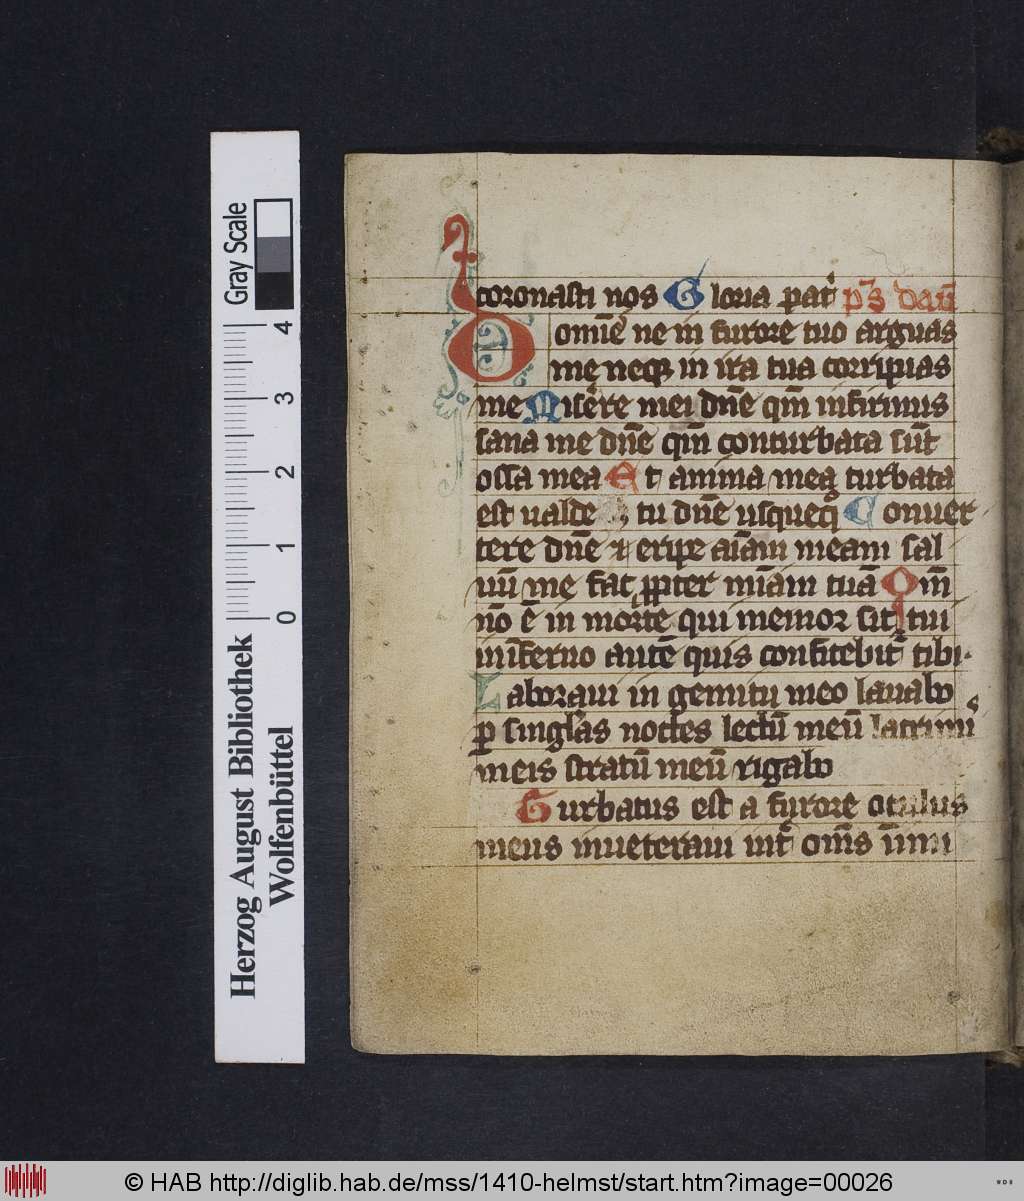 coronasti nos Gloria pat᷑ ps dauͫ
Domiē ne in furore tuo arguas
me neqꝫ in ira tua corripias
me Misēre mei dn̄e qm̄ infirmus
sana me dn̄e qm̄ conturbata su̅t
ossa mea Et anima mea turbata
est ualde tu dn̄e usquequo Conuer
tere dn̄e ⁊ eripe ai̅am meam sal
uū me fac ꝓpter mi̅am tuā Qm̄
nō ē in morte qui memor sit tui
in i̅ferno autē quis confitebit᷑ tibi.
Laboraui in gemitu meo lauabo
ꝑ singl̅as noctes lectū meū lacrimis
meis stratū meū rigabo
Turbatus est a furore oculus
meus inueteraui int᷑ om̄s in̅imi
Gray Scale
4
3
2
1
0
Herzog August Bibliothek
Wolfenbüttel
© HAB http://diglib.hab.de/mss/1410-helmst/start.htm?image=00026